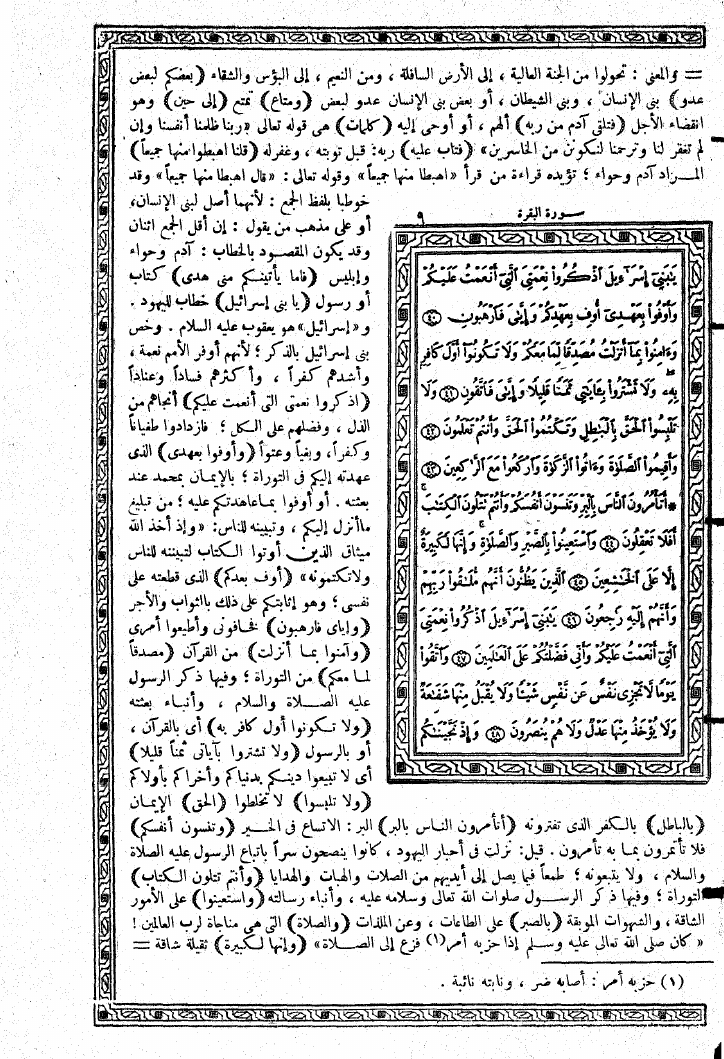 = والمعنى : تحولوا من الجنة العالية ، إلى الأرض السافلة ، ومن النعيم ، إلى البؤس والشقاء (بعضكم لبعض
عدو) بنى الإنسان ، وبنى الشيطان ، أو بعض بنى الإنسان عدو لبعض (ومتاع) تمتع (إلى حين) وهو
انقضاء الأجل (فتلقى آدم من ربه) ألهم ، أو أوحى إليه (كلمات) هى قوله تعالى «ربنا ظلمنا أنفسنا وإن
لم تغفر لنا وترحمنا لنكونن من الخاسرين» (فتاب عليه) ربه: قبل توبته ، وغفر له (قلنا اهبطوا منها جميعاً)
المـراد آدم وحواء ؛ تؤيده قراءة من قرأ «اهبطا منها جميعاً» وقوله تعالى: «قال اهبطا منها جميعاً» وقد
خوطبا بلفظ الجمع : لأنهما أصل لبنى الإنسان،
أو على مذهب من يقول : إن أقل الجمع اثنان
وقد يكون المقصود بالخطاب : آدم وحواء
وإبليس (فاما يأتينـكم منى هدى) كتاب
أو رسول (يا بنى إسرائيل) خطاب لليهود .
و «إسرائيل» هو يعقوب عليه السلام . وخص
بنى إسرائيل بالذكر ؛ لأنهم أوفر الأمم نعمة ،
وأشدهم كفراً ، وأكثرهم فساداً وعناداً
(اذكروا نعمتى التى أنعمت عليكم) أنجاهم من
الذل ، وفضلهم على الـكل ؛ فازدادوا طغياناً
وكفراً ، وبغياً وعتواً (وأوفوا بعهدى) الذى
عهدته إليكم فى التوراة ؛ بالإيمـان بمحمد عند
بعثته . أو أوفوا بمـا عاهدتكم عليه ؛ من تبليغ
ماأنزل إليكم ، وتبيينه للناس: «وإذ أخذ الله
ميثاق الذين أوتوا الـكتاب لتبيننه للناس
ولا تكتمونه» (أوف بعهدكم) الذى قطعته على
نفسى ؛ وهو إثابتكم على ذلك بالثواب والأجر
(وإياى فارهبون) فخافونى وأطيعوا أمرى
(وآمنوا بمـا أنزلت) من القرآن (مصدقاً
لمـا معكم) من التوراة ؛ وفيها ذكر الرسول
عليه الصـلاة والسلام ، وأنباء بعثته
(ولا تـكونوا أول كافر به) أى بالقرآن ،
أو بالرسول (ولا تشتروا بآياتى ثمناً قليلا)
أى لا تبيعوا دينـكم بدنياكم وأخراكم بأولاكم
(ولا تلبسوا) لا تخلطوا (الحق) الإيمـان
سورة البقرة ٩
يَـٰبَنِىٓ إِسۡرَٰٓءِيلَ ٱذۡكُرُواْ نِعۡمَتِىَ ٱلَّتِىٓ أَنۡعَمۡتُ عَلَيۡكُمۡ
وَأَوۡفُواْ بِعَهۡدِىٓ أُوفِ بِعَهۡدِكُمۡ وَإِيَّـٰىَ فَٱرۡهَبُونِ ٤٠
وَءَامِنُواْ بِمَآ أَنزَلۡتُ مُصَدِّقًا لِّمَا مَعَكُمۡ وَلَا تَكُونُوٓاْ أَوَّلَ كَافِرِۭ
بِهِۦ وَلَا تَشۡتَرُواْ بِـَٔايَـٰتِى ثَمَنًا قَلِيلًا وَإِيَّـٰىَ فَٱتَّقُونِ ٤١ وَلَا
تَلۡبِسُواْ ٱلۡحَقَّ بِٱلۡبَـٰطِلِ وَتَكۡتُمُواْ ٱلۡحَقَّ وَأَنتُمۡ تَعۡلَمُونَ ٤٢
وَأَقِيمُواْ ٱلصَّلَوٰةَ وَءَاتُواْ ٱلزَّكَوٰةَ وَٱرۡكَعُواْ مَعَ ٱلرَّٰكِعِينَ ٤٣
* أَتَأۡمُرُونَ ٱلنَّاسَ بِٱلۡبِرِّ وَتَنسَوۡنَ أَنفُسَكُمۡ وَأَنتُمۡ تَتۡلُونَ ٱلۡكِتَـٰبَۚ
أَفَلَا تَعۡقِلُونَ ٤٤ وَٱسۡتَعِينُواْ بِٱلصَّبۡرِ وَٱلصَّلَوٰةِۚ وَإِنَّهَا لَكَبِيرَةٌ
إِلَّا عَلَى ٱلۡخَـٰشِعِينَ ٤٥ ٱلَّذِينَ يَظُنُّونَ أَنَّهُم مُّلَـٰقُواْ رَبِّهِمۡ
وَأَنَّهُمۡ إِلَيۡهِ رَٰجِعُونَ ٤٦ يَـٰبَنِىٓ إِسۡرَٰٓءِيلَ ٱذۡكُرُواْ نِعۡمَتِىَ
ٱلَّتِىٓ أَنۡعَمۡتُ عَلَيۡكُمۡ وَأَنِّى فَضَّلۡتُكُمۡ عَلَى ٱلۡعَـٰلَمِينَ ٤٧ وَٱتَّقُواْ
يَوۡمًا لَّا تَجۡزِى نَفۡسٌ عَن نَّفۡسٍ شَيۡـًٔا وَلَا يُقۡبَلُ مِنۡهَا شَفَـٰعَةٌ
وَلَا يُؤۡخَذُ مِنۡهَا عَدۡلٌ وَلَا هُمۡ يُنصَرُونَ ٤٨ وَإِذۡ نَجَّيۡنَـٰكُم
(بالباطل) بالـكفر الذى تفترونه (أتأمرون النـاس بالبر) البر : الاتساع فى الخـير (وتنسون أنفسكم)
فلا تأتمرون بمـا به تأمرون . قيل: نزلت فى أحبار اليهود ، كانوا ينصحون سراً باتباع الرسول عليه الصلاة
والسلام ، ولا يتبعونه ؛ طمعاً فيما يصل إلى أيديهم من الصلات والهبات والهدايا (وأنتم تتلون الـكتاب)
التوراة ؛ وفيها ذكر الرسـول صلوات الله تعالى وسلامه عليه ، وأنباء رسالته (واستعينوا) على الأمور
الشاقة ، والشهوات الموبقة (بالصبر) على الطاعات ، وعن الملذات (والصلاة) التى هى مناجاة لرب العالمين !
« كان صلى الله تعالى عليه وسلم إذا حزبه أمر(١) فزع إلى الصـلاة » (وإنها لـكبيرة) ثقيلة شاقة =
(١) حزبه أمر : أصابه ضر ، ونابته نائبة .